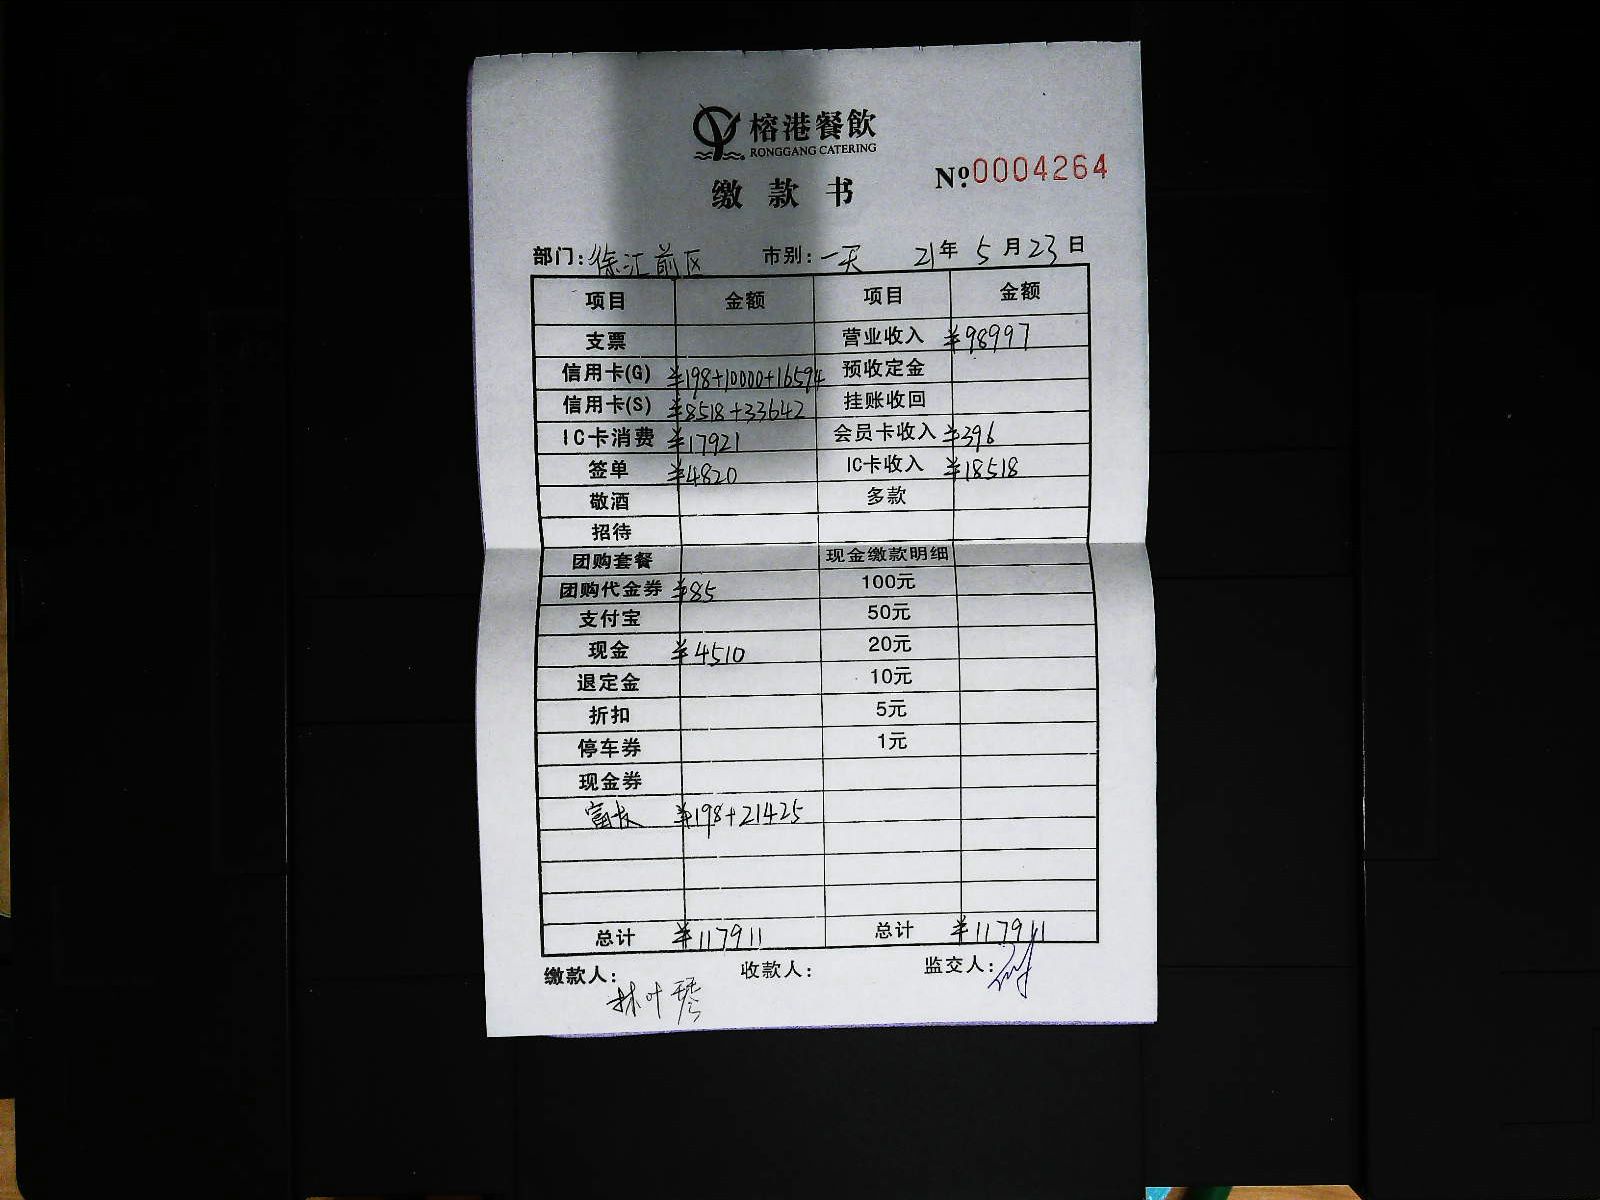 榕港餐飲
RONGGANG CATERING
缴款书
Nº:0004264
部门:徐汇前区 市别:一天 21年5月23日
项目 金额 项目 金额
支票 营业收入 ¥98997
信用卡(G) ¥198+10000+16594 预收定金
信用卡(S) ¥8518+33642 挂账收回
IC卡消费 ¥17921 会员卡收入 ¥396
签单 ¥4820 IC卡收入 ¥18518
敬酒 多款
招待
团购套餐 现金缴款明细
团购代金券 ¥85 100元
支付宝 50元
现金 ¥4510 20元
退定金 10元
折扣 5元
停车券 1元
现金券
富卡 ¥198+21425
总计 ¥117911 总计 ¥117911
缴款人: 林叶琴 收款人: 监交人: